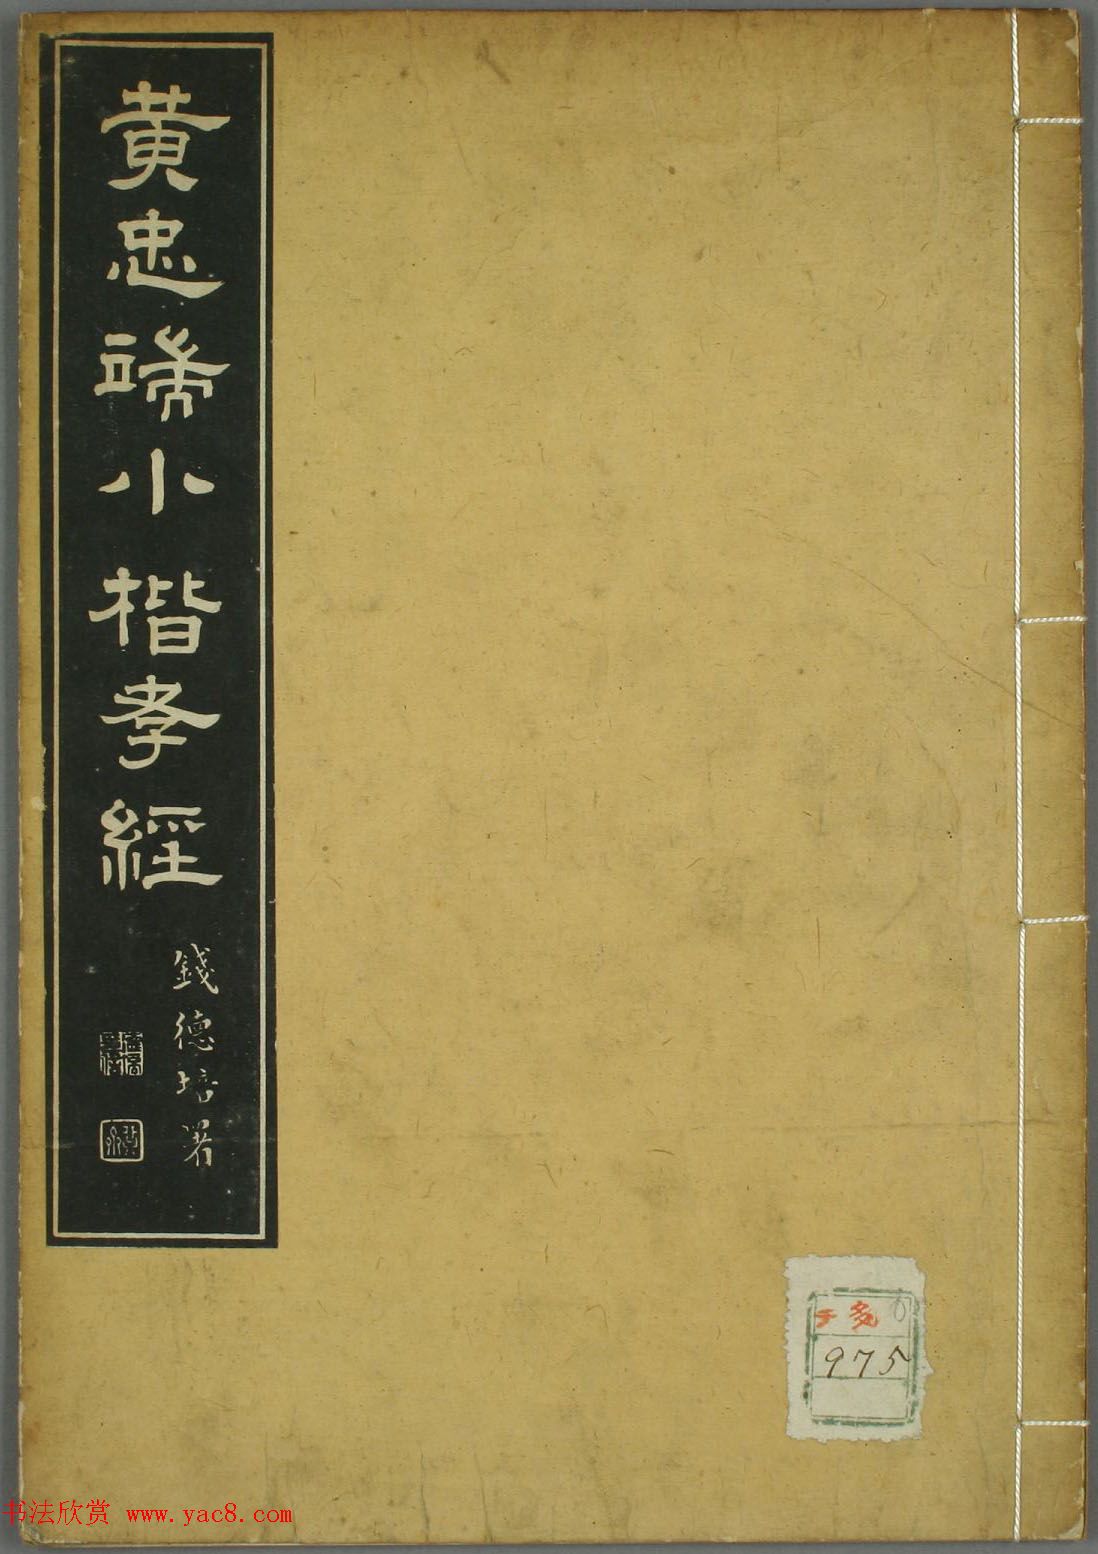 黃忠端小楷孝經
錢德培署
975
书法欣赏 www.yac8.com